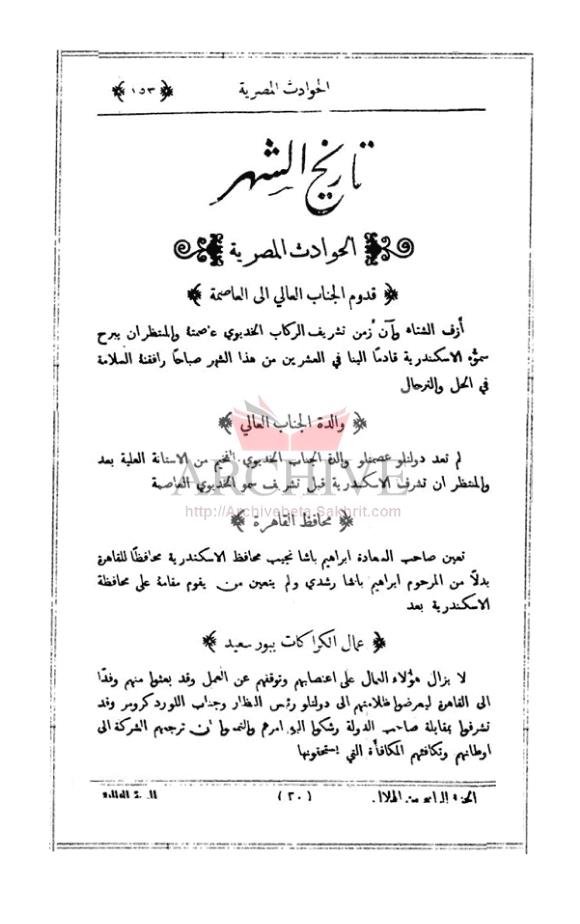 الحوادث المصرية
﴿ ١٥٣ ﴾
تاريخ الشهر
الحوادث المصرية
﴿ قدوم الجناب العالي الى العاصمة ﴾
أزف الشتاء وآن زمن تشريف الركاب الخديوي عاصمتهُ والمنتظر ان يبرح
سموّه الاسكندرية قادمًا الينا في العشرين من هذا الشهر صباحًا رافقتهُ السلامة
في الحل والترحال
﴿ والدة الجناب العالي ﴾
لم تعد دولتلو عصمتلو والدة الجناب الخديوي الفخيم من الاستانة العلية بعد
والمنتظر ان تشرف الاسكندرية قبل تشريف سمو الخديوي العاصمة
ARCHIVE
http://Archivebeta.Sakhrit.com
﴿ محافظ القاهرة ﴾
تعين صاحب السعادة ابراهيم باشا نجيب محافظ الاسكندرية محافظًا للقاهرة
بدلًا من المرحوم ابراهيم باشا رشدي ولم يتعين من يقوم مقامهُ على محافظة
الاسكندرية بعد
﴿ عمال الكراكات ببور سعيد ﴾
لا يزال هؤلاء العمال على اعتصابهم وتوقفهم عن العمل وقد بعثوا منهم وفدًا
الى القاهرة ليعرضوا ظلامتهم الى دولتلو رئيس النظار وجناب اللورد كرومر وقد
تشرفوا بمقابلة صاحب الدولة وشكوا اليهِ امرهم والتمسوا ان ترجعهم الشركة الى
اوطانهم وتكافئهم المكافأة التي يستحقونها
الجزء الرابع من الهلال
( ٢٠ )
السنة الثالثة